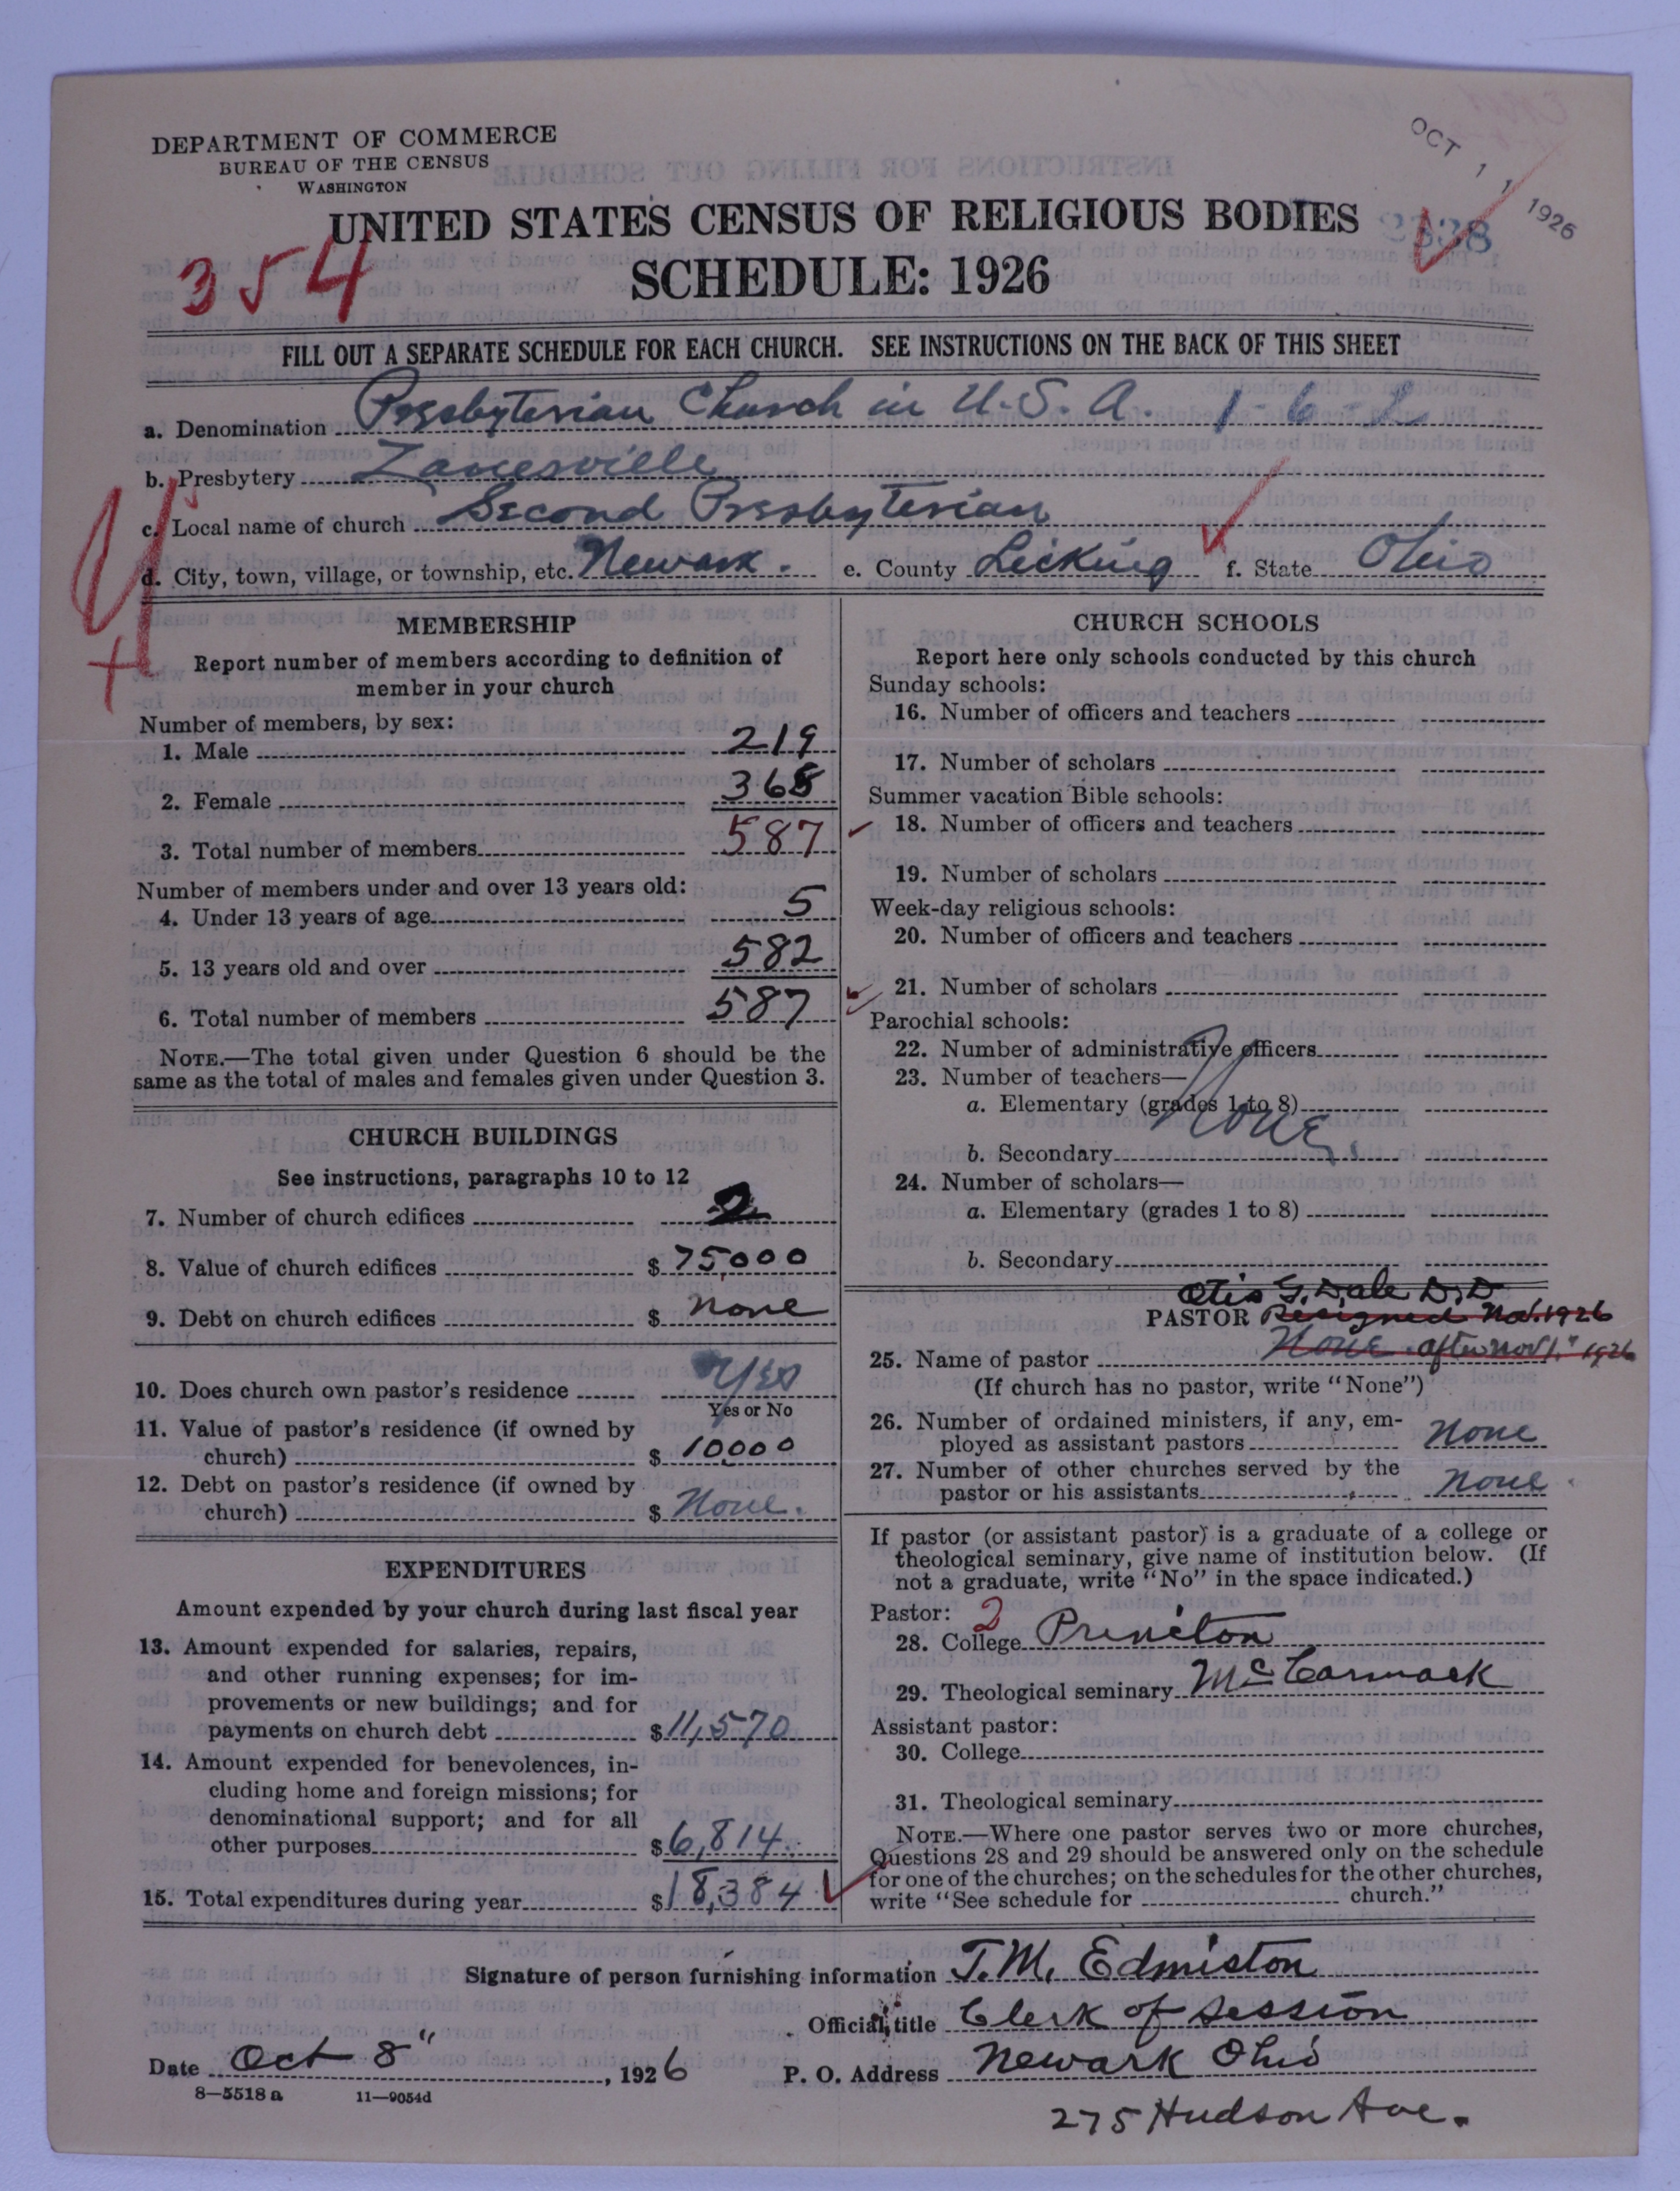 DEPARTMENT OF COMMERCE
BUREAU OF THE CENSUS
WASHINGTON
OCT 11 1926
UNITED STATES CENSUS OF RELIGIOUS BODIES
354
SCHEDULE: 1926
FILL OUT A SEPARATE SCHEDULE FOR EACH CHURCH. SEE INSTRUCTIONS ON THE BACK OF THIS SHEET
a. Denomination Presbyterian Church in U.S.A. 1-6-2
b. Presbytery Zanesville
c. Local name of church Second Presbyterian
d. City, town, village, or township, etc. Newark. e. County Licking f. State Ohio
MEMBERSHIP
Report number of members according to definition of
member in your church
Number of members, by sex:
1. Male 219
2. Female 368
3. Total number of members 587
Number of members under and over 13 years old:
4. Under 13 years of age 5
5. 13 years old and over 582
6. Total number of members 587
NOTE.—The total given under Question 6 should be the
same as the total of males and females given under Question 3.
CHURCH BUILDINGS
See instructions, paragraphs 10 to 12
7. Number of church edifices 2
8. Value of church edifices $ 75,000
9. Debt on church edifices $ none
10. Does church own pastor's residence Yes
Yes or No
11. Value of pastor's residence (if owned by
church) $ 10,000
12. Debt on pastor's residence (if owned by
church) $ None.
EXPENDITURES
Amount expended by your church during last fiscal year
13. Amount expended for salaries, repairs,
and other running expenses; for im-
provements or new buildings; and for
payments on church debt $ 11,570
14. Amount expended for benevolences, in-
cluding home and foreign missions; for
denominational support; and for all
other purposes $ 6,814
15. Total expenditures during year $ 18,384
CHURCH SCHOOLS
Report here only schools conducted by this church
Sunday schools:
16. Number of officers and teachers
17. Number of scholars
Summer vacation Bible schools:
18. Number of officers and teachers
19. Number of scholars
Week-day religious schools:
20. Number of officers and teachers
21. Number of scholars
Parochial schools:
22. Number of administrative officers
23. Number of teachers—
a. Elementary (grades 1 to 8)
None.
b. Secondary
24. Number of scholars—
a. Elementary (grades 1 to 8)
b. Secondary
Otis G. Dale D.D
PASTOR Resigned Nov. 1926
25. Name of pastor None after Nov 1" 1926
(If church has no pastor, write "None")
26. Number of ordained ministers, if any, em-
ployed as assistant pastors None
27. Number of other churches served by the
pastor or his assistants None
If pastor (or assistant pastor) is a graduate of a college or
theological seminary, give name of institution below. (If
not a graduate, write "No" in the space indicated.)
Pastor: 2
28. College Princiton
29. Theological seminary McCormack
Assistant pastor:
30. College
31. Theological seminary
NOTE.—Where one pastor serves two or more churches,
Questions 28 and 29 should be answered only on the schedule
for one of the churches; on the schedules for the other churches,
write "See schedule for church."
Signature of person furnishing information T. M. Edmiston
Official title Clerk of Session
Date Oct 8", 1926 P. O. Address Newark Ohio
8-5518 a 11-9054d
275 Hudson Ave.